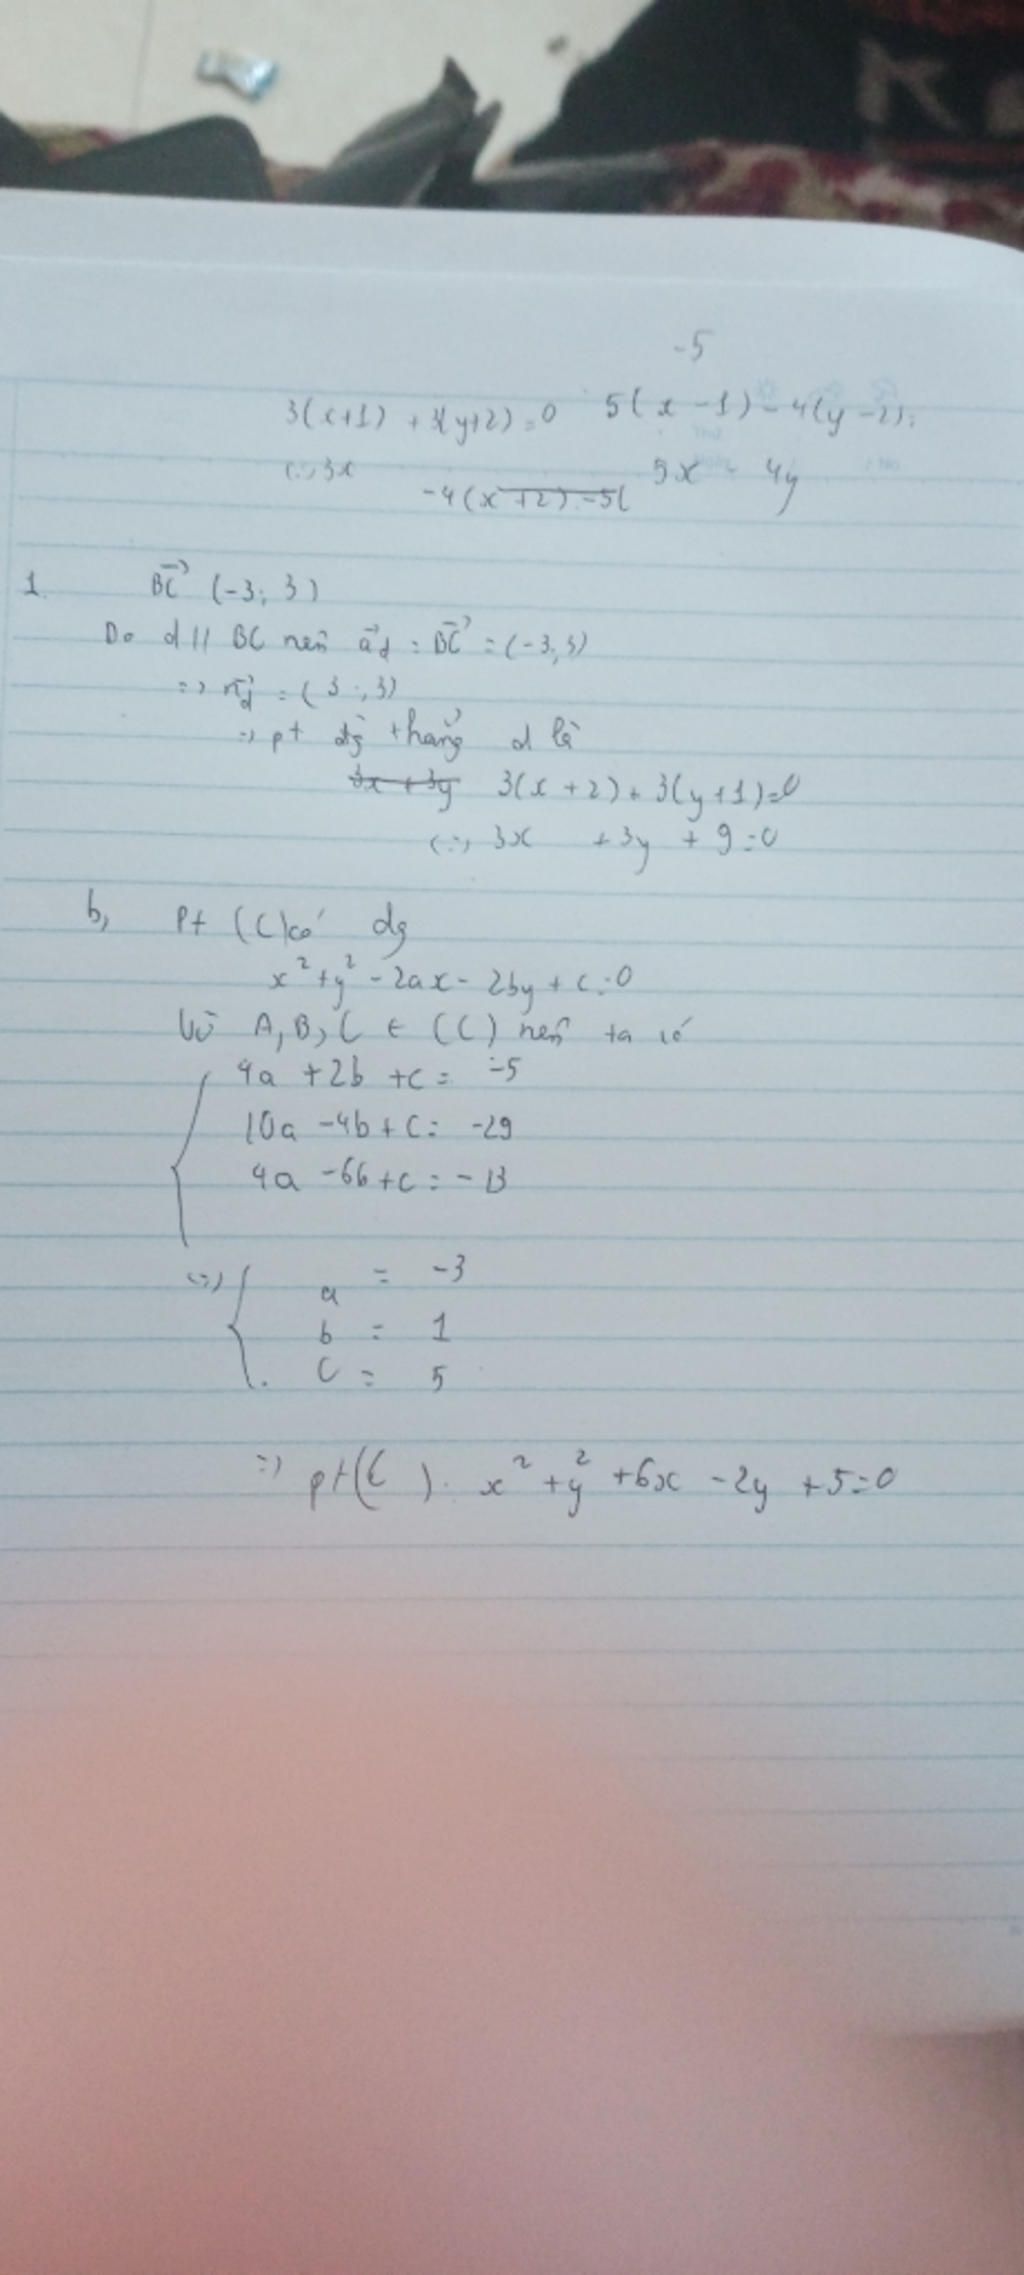 -5
3(x+1) + 3(y+2)=0 5(x-1)-4(y-2)=
<=> 3x 5x - 4y
-4(x+2).-5(
1. BC→ (-3; 3)
Do d // BC nên a→d = BC→ = (-3; 3)
=> n→d = (3; 3)
=> pt đg thẳng d là
3x + 3y 3(x+2)+3(y+1)=0
<=> 3x + 3y + 9=0
b, Pt (C) có dg
x²+y²-2ax-2by+c=0
Vì A, B, C ∈ (C) nên ta có
4a +2b +c= -5
10a -4b+c= -29
4a -6b+c= -13
<=> a = -3
b = 1
c = 5
=> pt (C). x²+y² +6x -2y +5=0